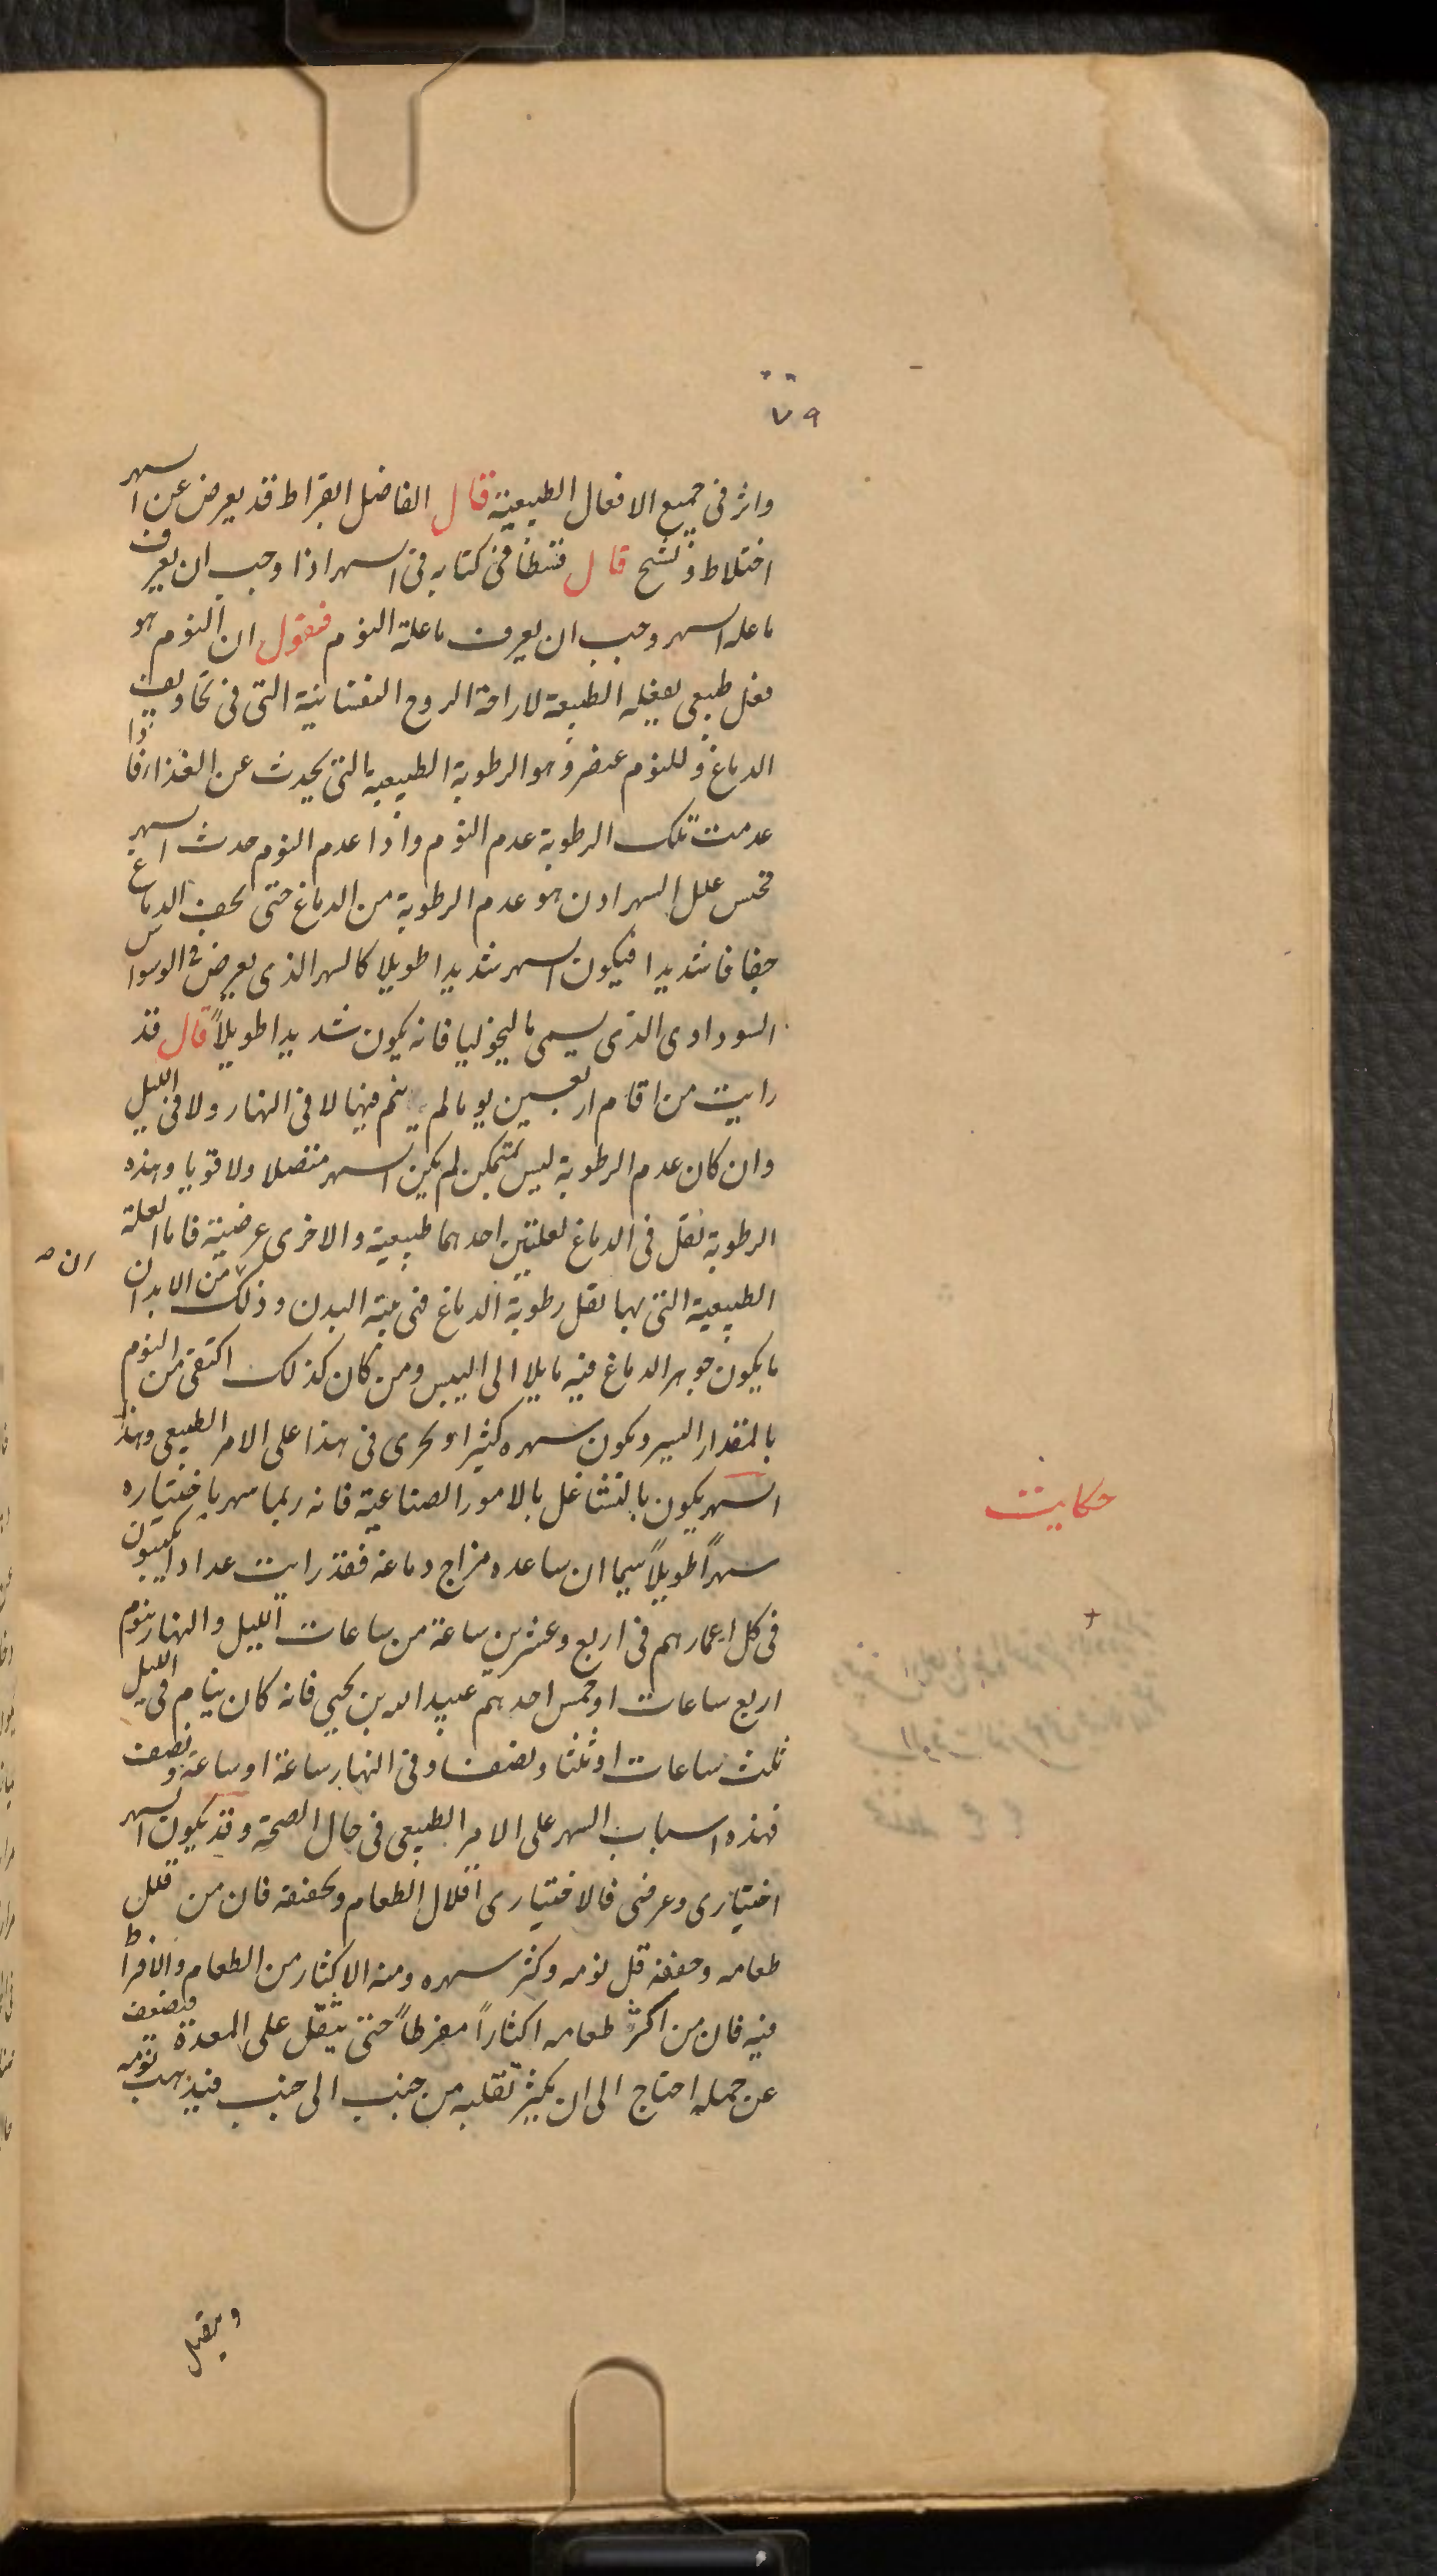 ٧٩
واثر فى جميع الافعال الطبيعية قال الفاضل ابقراط قد يعرض عن السهر
اختلاط وتشنج قال قسطا فى كتابه فى السهر اذا وجب ان يعرف
ما علة السهر وجب ان يعرف ما علة النوم فنقول ان النوم هو
فعل طبيعى يفعله الطبيعة لاراحة الروح النفسانية التى فى تجاويف
الدماغ وللنوم عنصر وهو الرطوبة الطبيعية التى يحدث عن الغذا فاذا
عدمت تلك الرطوبة عدم النوم واذا عدم النوم حدث السهر
علل السهر اذن هو عدم الرطوبة من الدماغ حتى يجف الدماغ
جفافا شديدا فيكون السهر شديدا طويلا كالسهر الذى يعرض فى الوسواس
السوداوى الذى يسمى ماليخوليا فانه يكون شديدا طويلاً قال قد
رايت من اقام اربعين يوما لم ينم فيها لا فى النهار ولا فى الليل
وان كان عدم الرطوبة ليس بمتمكن لم يكن السهر متصلا ولا قويا وهذه
الرطوبة تقل فى الدماغ لعلتين احدهما طبيعية والاخرى عرضية فاما العلة
الطبيعية التى بها تقل رطوبة الدماغ فى بنية البدن وذلك من الابدان
ان
ما يكون جوهر الدماغ فيه مايلا الى اليبس ومن كان كذلك اكتفى من النوم
بالمقدار اليسير ويكون سهره كثيرا ويجرى فى هذا على الامر الطبيعى وهذا
السهر يكون بالتشاغل بالامور الصناعية فانه ربما سهر باختياره
حكايت
سهراً طويلاً سيما ان ساعده مزاج دماغه فقد رايت عدادا يكتبون
فى كل اعمارهم فى اربع وعشرين ساعة من ساعات الليل والنهار بنوم
اربع ساعات او خمس احدهم عبيد الله بن يحيى فانه كان ينام فى الليل
ثلث ساعات او ثلثا ونصف وفى النهار ساعة او ساعة ونصف
فهذه اسباب السهر على الامر الطبيعى فى حال الصحة وقد يكون السهر
اختيارى وعرضى فالاختيارى اقلال الطعام وتخففه فان من قلل
طعامه وخففه قل نومه وكثر سهره ومنه الاكثار من الطعام والافراط
فيه فان من اكثر طعامه اكثاراً مفرطاً حتى يثقل على المعدة فيضعف
عن حمله احتاج الى ان يكثر تقلبه من جنب الى جنب فيذهب نومه
ويقبل